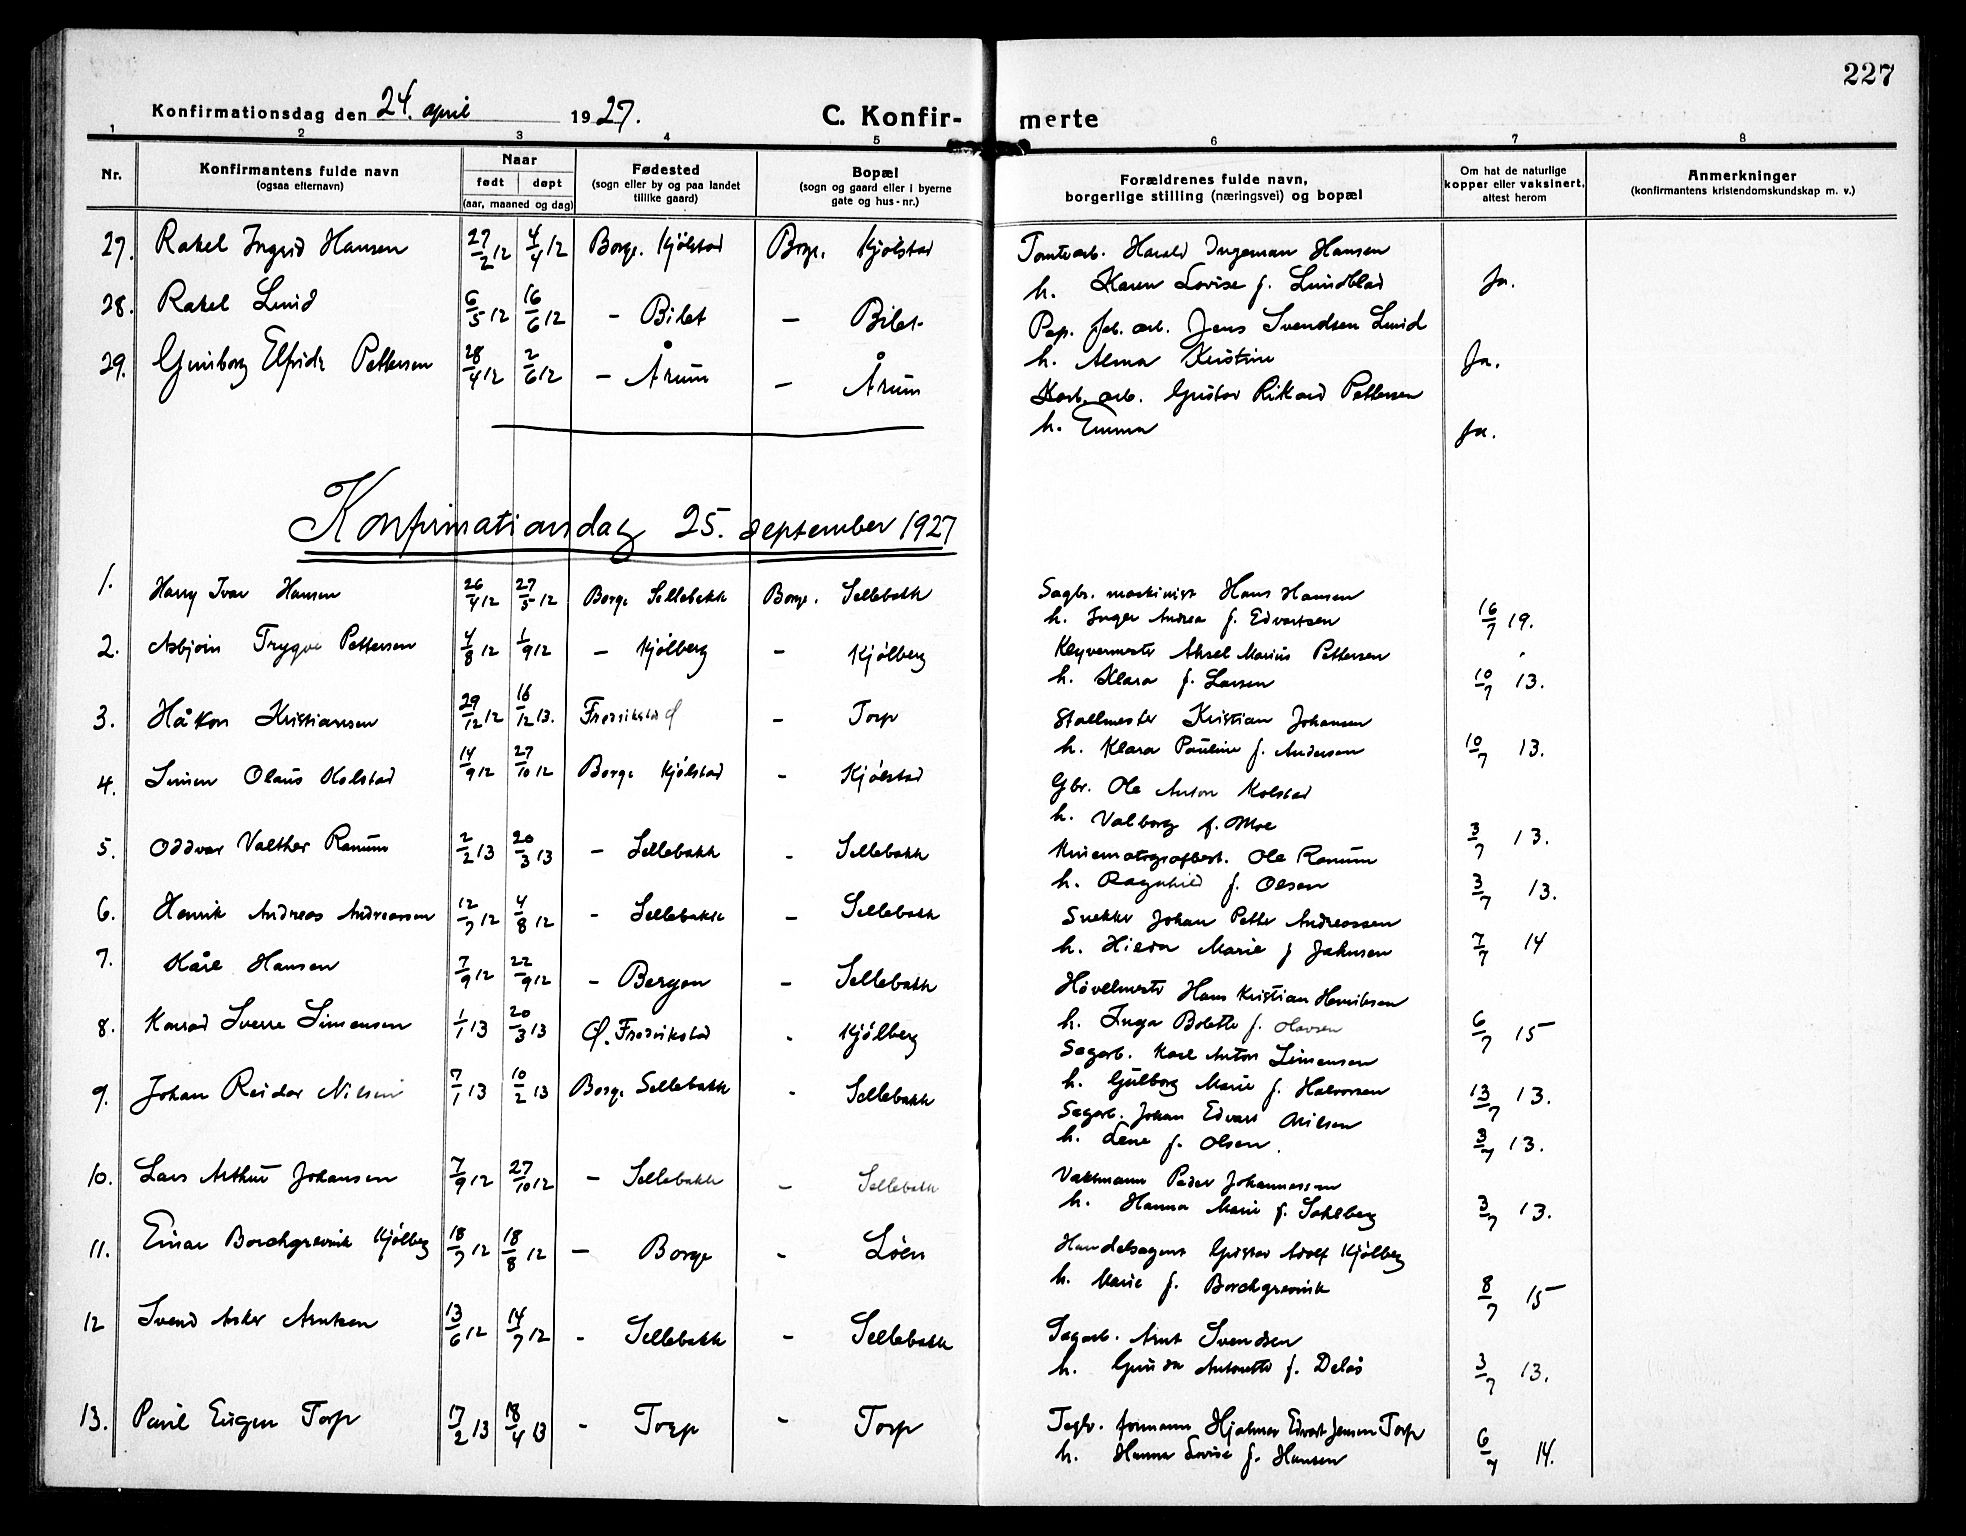 227
Konfirmationsdag den 24. april 1927. C. Konfir- merte
1 2 3 4 5 6 7 8
Nr. Konfirmantens fulde navn (ogsaa efternavn) Naar født døpt (aar, maaned og dag) Fødested (sogn eller by og paa landet tillike gaard) Bopæl (sogn og gaard eller i byerne gate og hus-nr.) Forældrenes fulde navn, borgerlige stilling (næringsvei) og bopæl Om hat de naturlige kopper eller vaksinert, attest herom Anmerkninger (konfirmantens kristendomskundskap m. v.)
27. Rakel Ingrid Hansen 27/2 12 4/4 12 Borge. Kjølstad Borge. Kjølstad Tomtearb. Harald Ingeman Hansen
h. Karen Lovise f. Lundblad Ja.
28. Rakel Lund 6/5 12 16/6 12 – Bilet – Bilet Pap. fab. arb. Jens Svendsen Lund
h. Alma Kristine Ja.
29. Gunborg Elfrida Pettersen 28/4 12 2/6 12 – Årum – Årum arb. Gustav Rikard Pettersen
h. Emma Ja.
Konfirmationsdag 25. september 1927
1. Harry Ivar Hansen 26/4 12 27/5 12 Borge Sellebakk Borge. Sellebakk Sagbr. maskinist Hans Hansen
h. Inger Andrea f. Edvartsen 16/7 19.
2. Asbjørn Trygve Pettersen 4/8 12 1/9 12 – Kjølberg – Kjølberg Kløvermester Aksel Marius Pettersen
h. Klara f. Larsen 10/7 13.
3. Håkon Kristiansen 29/12 12 16/12 13. Fredrikstad – Torp Stallmester Kristian Johansen
h. Klara Pauline f. Andersen 10/7 13.
4. Simen Olaus Kolstad 14/9 12 27/10 12 Borge Kjølstad – Kjølstad Gbr. Ole Anton Kolstad
h. Valborg f. Moe 3/7 13.
5. Oddvar Valther Ranum 2/2 13 20/3 13 – Sellebakk – Sellebakk Kinematografbest. Ole Ranum
h. Ragnhild f. Olsen 3/7 13.
6. Henrik Andreas Andreassen 12/7 12 4/8 12 – Sellebakk – Sellebakk Snekker Johan Petter Andreassen
h. Hilda Marie f. Jahnsen 7/7 14
7. Kåre Hansen 7/9 12 22/9 12 – Bergen – Sellebakk Høvelmester Hans Kristian Henriksen
h. Inga Bolette f. Olavsen 6/7 15
8. Konrad Sverre Simensen 1/1 13 20/3 13 Ø. Fredrikstad – Kjølberg Sagarb. Karl Anton Simensen
h. Gulborg Marie f. Halvorsen 13/7 13.
9. Johan Reidar Nilsen 7/1 13 10/2 13 Borge Sellebakk – Sellebakk Sagarb. Johan Edvart Nilsen
h. Lene f. Olsen. 3/7 13.
10. Lars Arthur Johansen 7/9 12 27/10 12 – Sellebakk – Sellebakk Vaktmann Peder Johannessen
h. Hanna Marie f. Sahlberg 3/7 13.
11. Einar Borchgrevink Kjølberg 18/7 12 18/8 12 – Borge – Løen Handelsagent Gustav Adolf Kjølberg
h. Marie f. Borchgrevink 8/7 15
12 Svend Asker Arntsen 13/6 12 14/7 12 – Sellebakk – Sellebakk Sagarb. Arnt Svendsen
h. Gunda Antonette f. Delås 3/7 13.
13. Paul Eugen Torp 17/2 13 18/4 13 – Torp – Torp Teglv. formann Hjalmar Edvart Jensen Torp
h. Hanna Lovise f. Hansen 6/7 14.